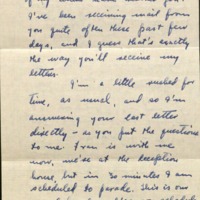 I've been receiving mail from
you quite often these past few
days, and I guess that's exactly
the way you'll receive my
letters.
I'm a little rushed for
time, as usual, and so I'm
answering your last letter
directly - as you put the questions
to me. Fran is with me
now, we're at the reception
house, but in 30 minutes I am
scheduled to parade. This is our